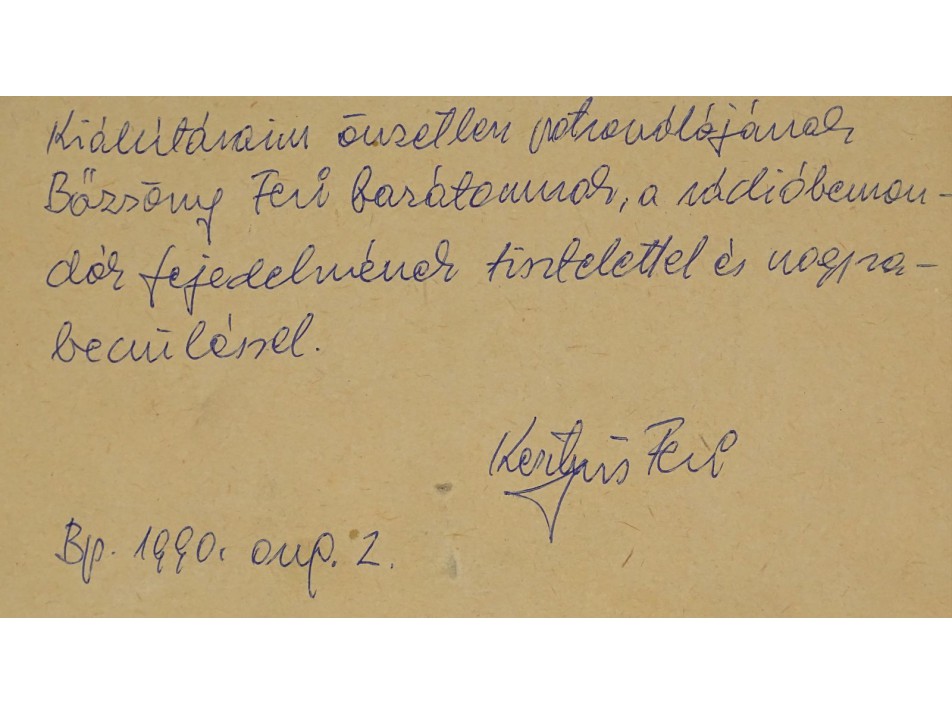 Kiállításaim önzetlen patronálójának
Bőzsöny Feri barátomnak, a rádióbemon-
dók fejedelmének tisztelettel és nagyra-
becsüléssel.
Kertész Feri
Bp. 1990. aug. 2.